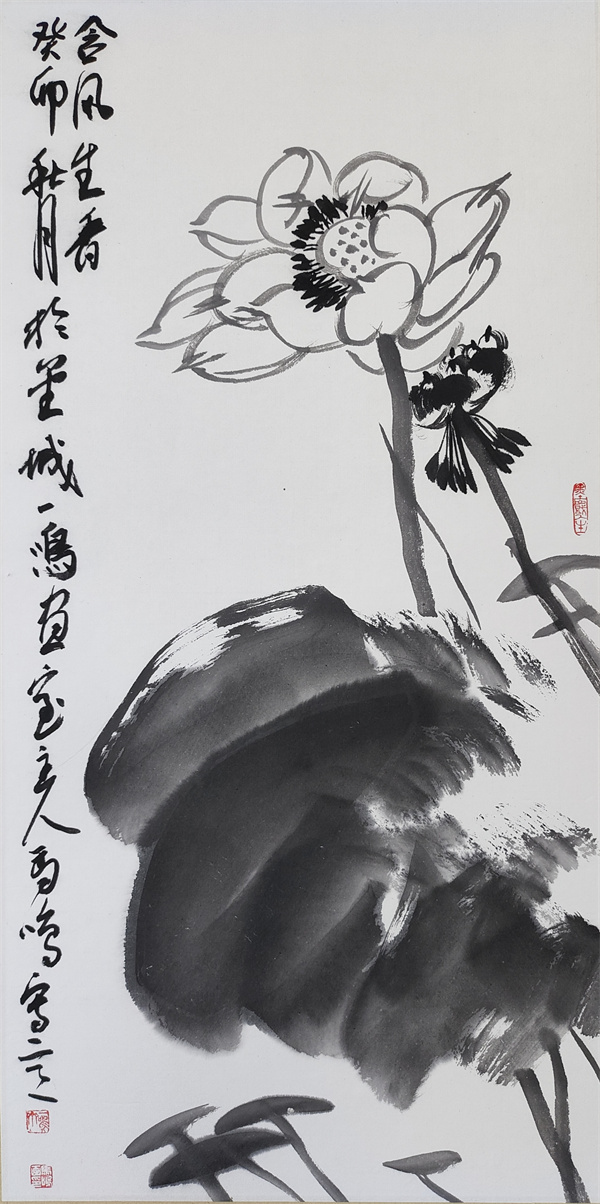 含风生香
癸卯秋月於金城一鸣画室主人马鸣写之